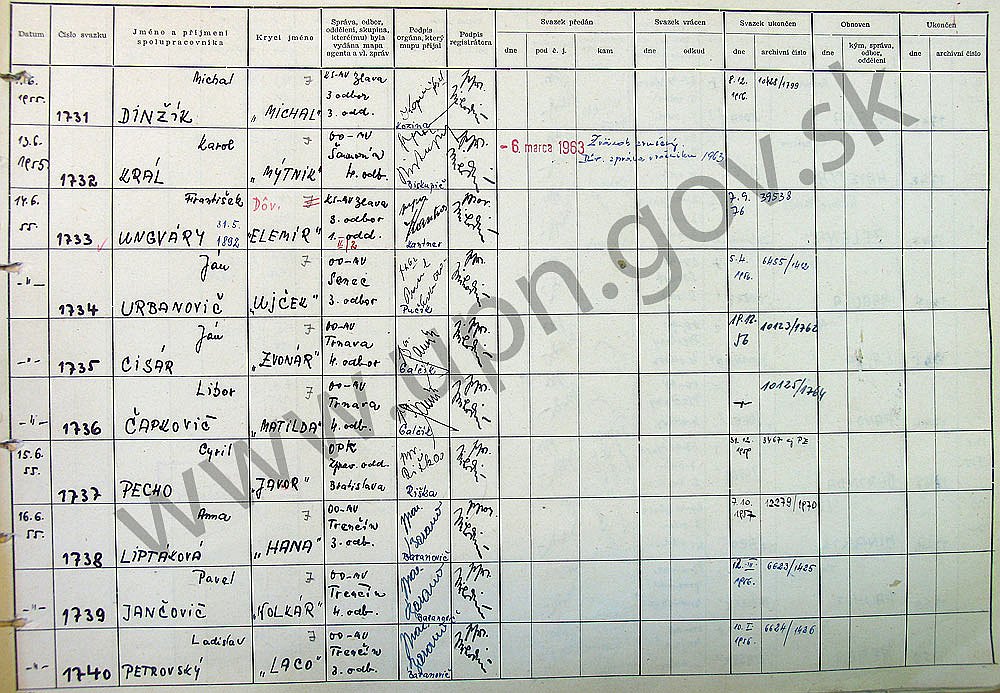 Datum
Číslo svazku
Jméno a příjmení
spolupracovníka
Krycí jméno
Správa, odbor,
oddělení, skupina,
které(mu) byla
vydána mapa
agenta a vl. zpráv
Podpis
orgánu, který
mapu přijal
Podpis
registrátora
Svazek předán
dne
pod č. j.
kam
Svazek vrácen
dne
odkud
Svazek ukončen
dne
archivní číslo
Obnoven
dne
kým, správa,
odbor,
oddělení
Ukončen
dne
archivní číslo
1955.
1731
Michal
DINŽÍK
"MICHAL"
KS-AV Ilava
3 odbor
3. odd.
Kozina
8.12.
1956.
13.6.
1955.
1732
Karol
KRÁL
"MÝTNÍK"
OO-AV
Šamorín
Biskupič
- 6. marca 1963
14.6.
55.
1733
František
UNGVÁRY
31.5.
1892
Dôv.
"ELEMÍR"
KS-AV Ilava
3. odbor
1. odd.
II/2
Kantner
7.9.
76
39538
-"-
1734
Ján
URBANOVIČ
"UJČEK"
OO-AV
Senec
3. odbor
Pučík
5.4.
1956.
6455/1412
-"-
1735
Ján
CISÁR
"ZVONÁR"
OO-AV
Trnava
4. odbor
Galčík
19.12.
56
10123/1762
-"-
1736
Libor
ČAPKOVIČ
"MATILDA"
OO-AV
Trnava
4. odb.
Galčík
10125/1764
15.6.
55.
1737
Cyril
PECHO
"JAVOR"
OPK
Zprav. odd.
Bratislava
Riška
31.12.
16.6.
55.
1738
Anna
LIPTÁKOVÁ
"HANA"
OO-AV
Trenčín
3. odb.
Baranovič
7.10.
1957.
12279/1970
-"-
1739
Pavel
JANČOVIČ
"KOLKÁR"
OO-AV
Trenčín
4. odb.
1956.
6623/1425
-"-
1740
Ladislav
PETROVSKÝ
"LACO"
OO-AV
Trenčín
3. odb.
Baranovič
10.I.
1956.
6624/1426
www.upn.gov.sk